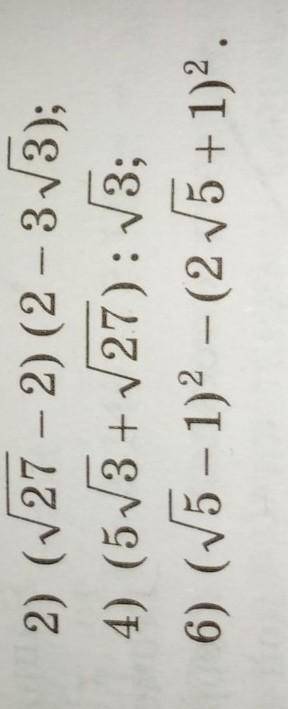 2) (√27 − 2)(2 − 3√3);
4) (5√3 + √27) : √3;
6) (√5 − 1)² − (2√5 + 1)².